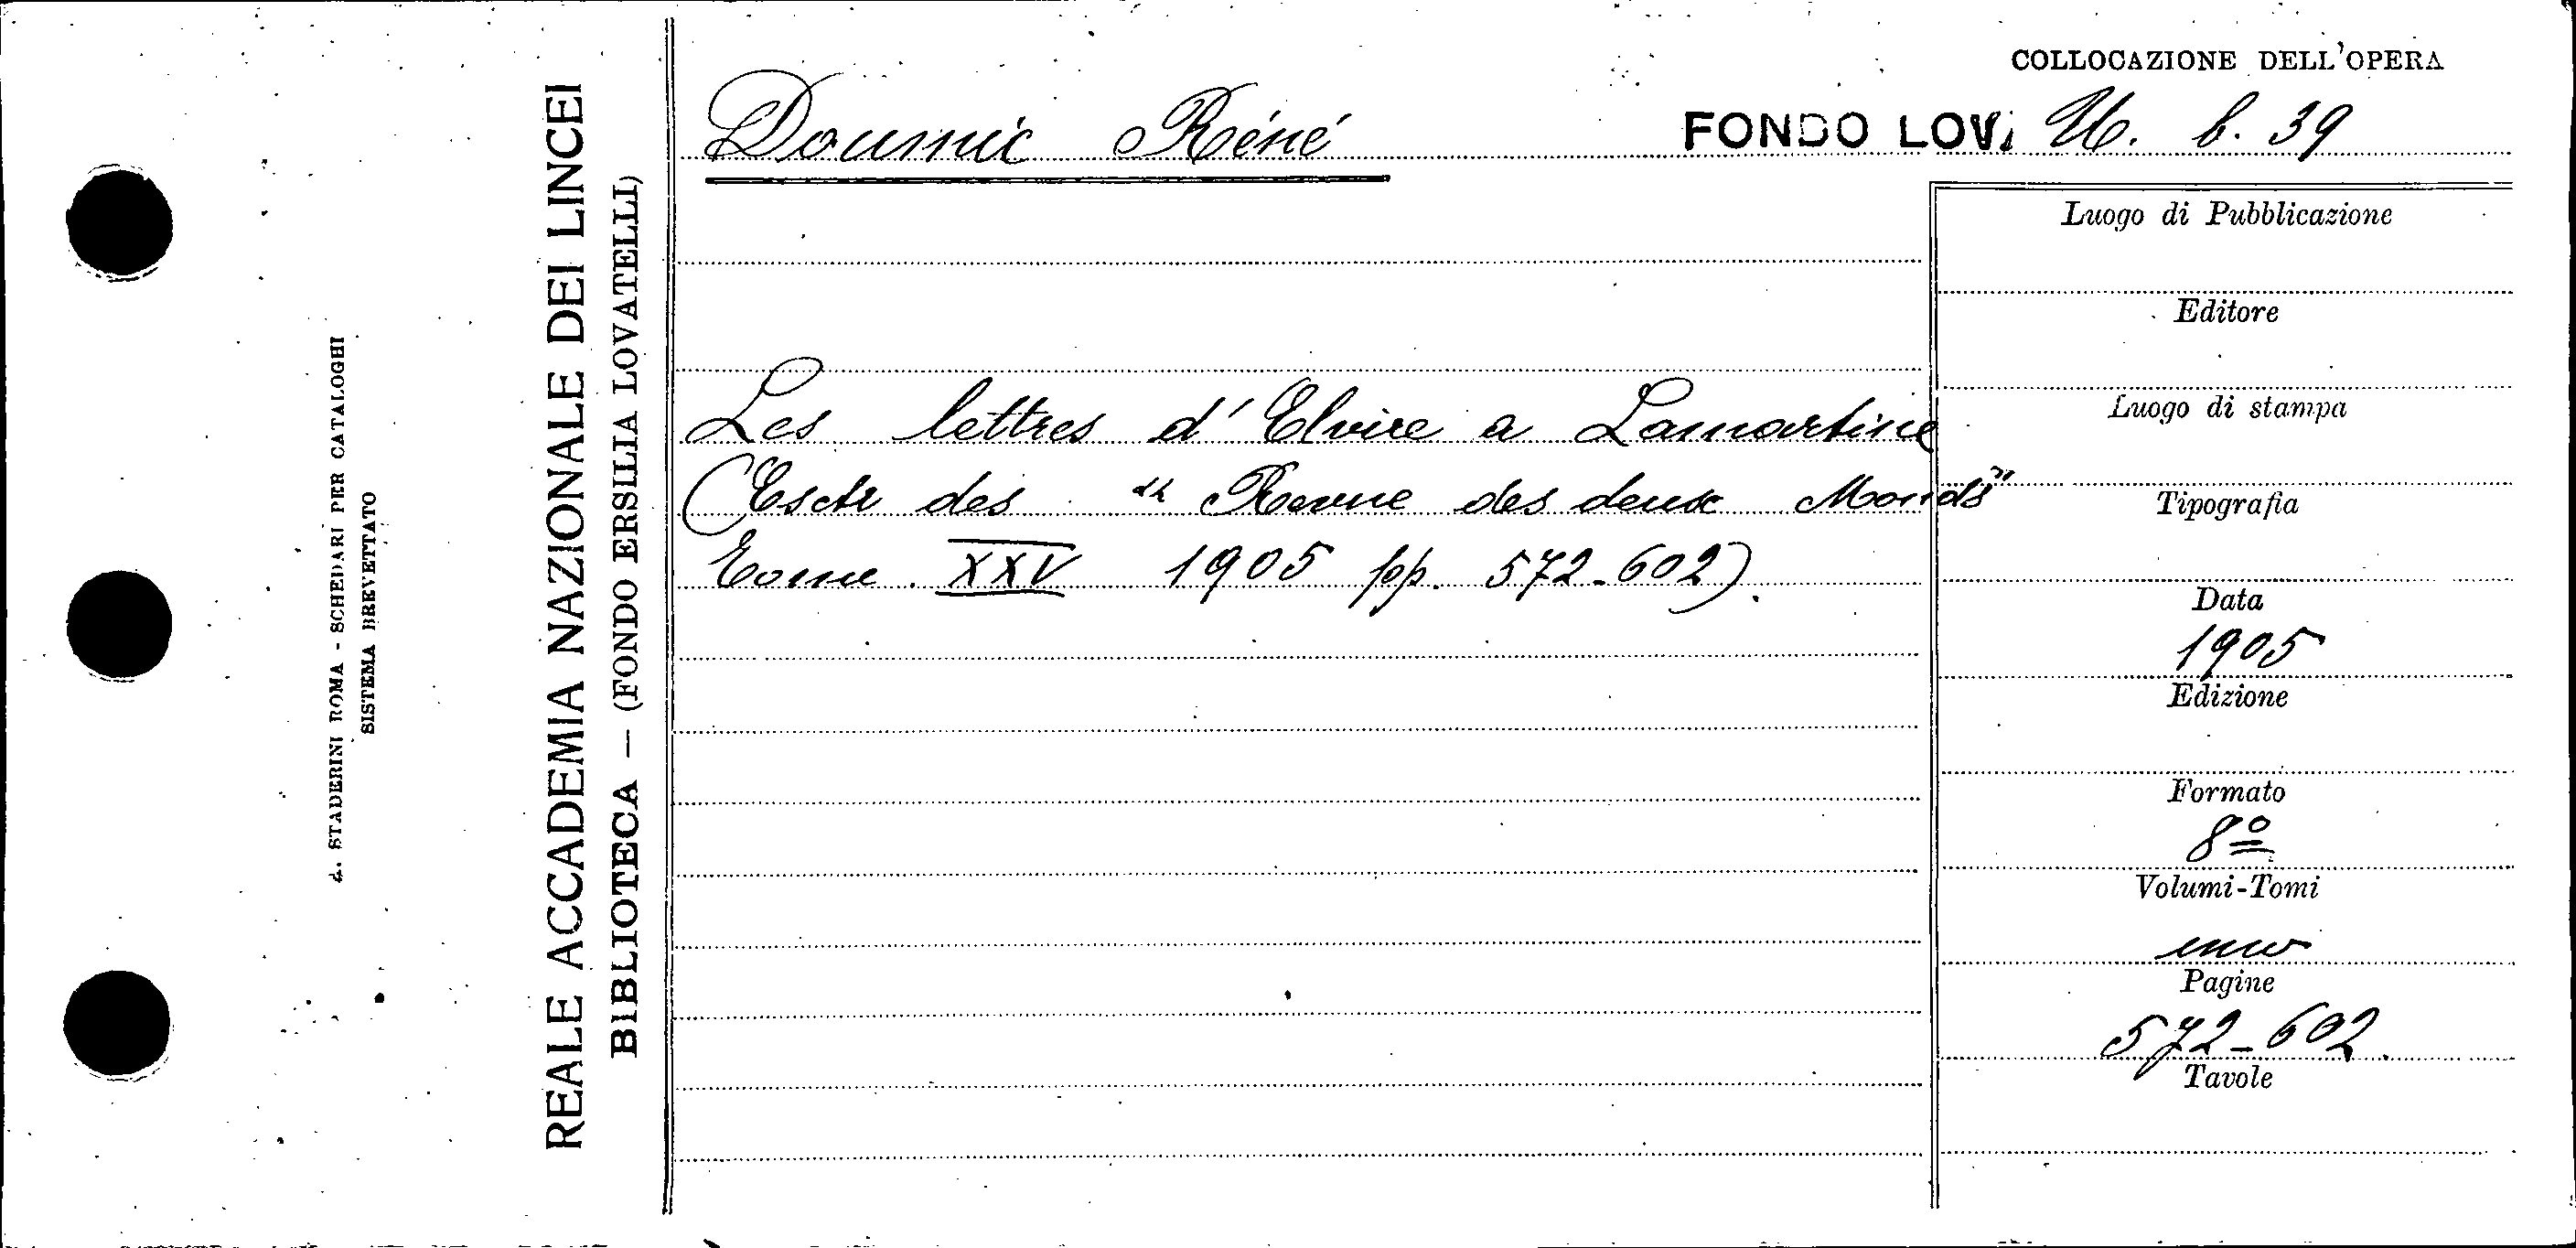 COLLOCAZIONE DELL'OPERA
Doumic Réné
FONDO LOV. U. b. 39
Les lettres d'Elvire a Lamartine
(Estr des "Revue des deux Monds"
Tome XXV 1905 pp. 572-602).
Luogo di Pubblicazione
Editore
Luogo di stampa
Tipografia
Data
1905
Edizione
Formato
8º
Volumi-Tomi
uno
Pagine
572-602.
Tavole
REALE ACCADEMIA NAZIONALE DEI LINCEI
BIBLIOTECA — (FONDO ERSILIA LOVATELLI)
STADERINI ROMA - SCHEDARI PER CATALOGHI
SISTEMA BREVETTATO